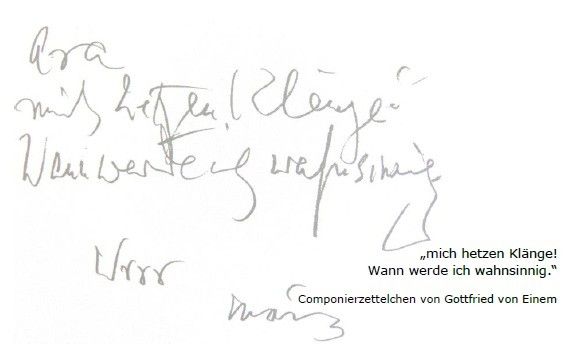 mich hetzen! Klänge
Wann werde ich wahnsinnig
Wrrr
März
„mich hetzen Klänge!
Wann werde ich wahnsinnig.“
Componierzettelchen von Gottfried von Einem